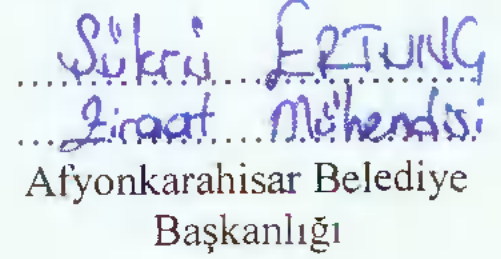 Şükrü ERTUNÇ
Ziraat Mühendisi
Afyonkarahisar Belediye
Başkanlığı